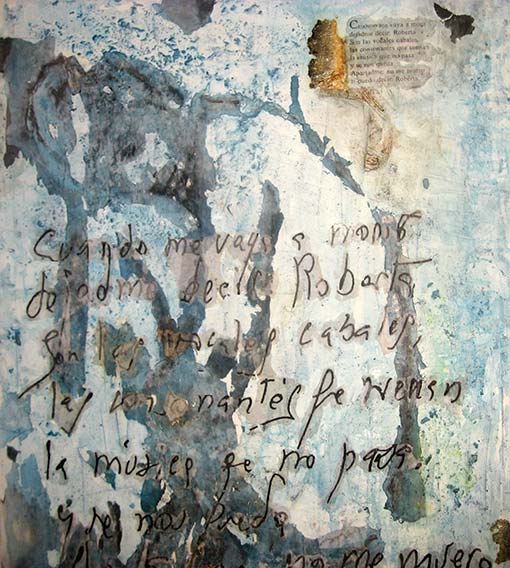 Cuando me vaya a morir
dejadme decir: Roberta
Son las vocales cabales,
las consonantes que suenan
la música que no pasa
y se nos queda
Apartadme: no me muero
si puedo decir: Roberta.
Cuando me vaya a morir
dejadme decir: Roberta,
Son las vocales cabales,
las consonantes qe suenan
la música qe no pasa.
y se nos queda
no me muero